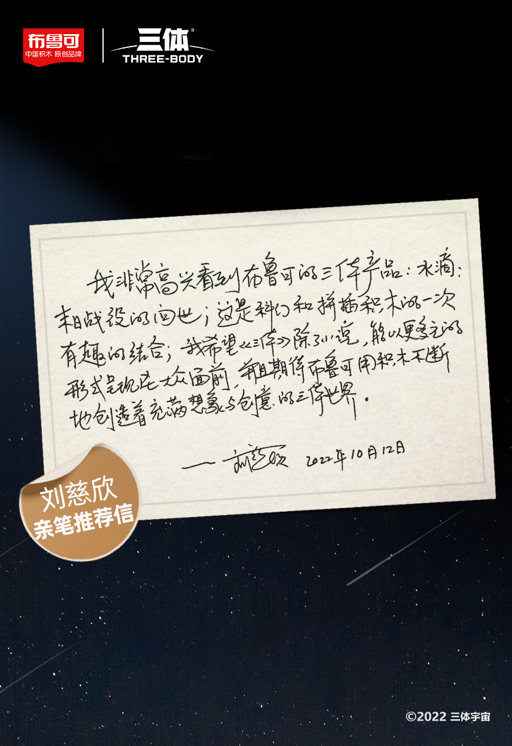 布鲁可
中国积木 原创品牌
三体
THREE-BODY
我非常高兴看到布鲁可的三体产品：水滴：
末日战役的问世；这是科幻和拼插积木的一次
有趣的结合；我希望《三体》除小说，能以更多元的
形式呈现在大众面前，并且期待布鲁可用积木不断
地创造着充满想象与创意的三体世界。
—刘慈欣 2022年10月12日
刘慈欣
亲笔推荐信
©2022 三体宇宙